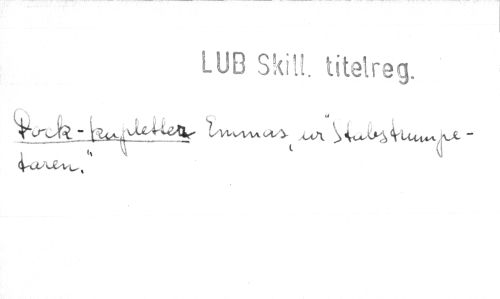 LUB Skill. titelreg.
Pock-kupletter Emmas, ur "Stabstrumpe-
taren."